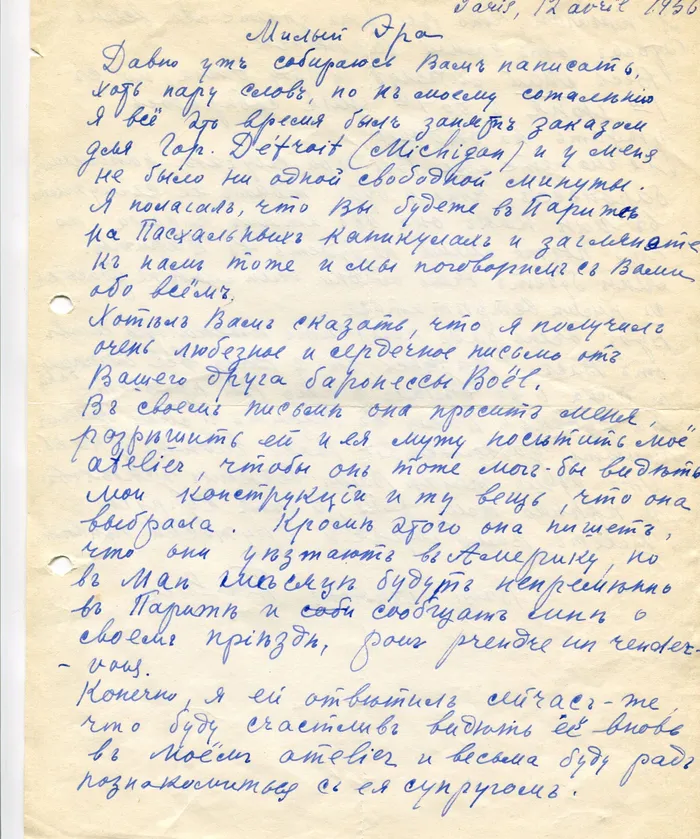 Paris, 12 avril 1956
Милый Эра
Давно ужъ собираюсь Вамъ написать,
хоть пару словъ, но къ моему сожалѣнію
я всё это время былъ занятъ заказом
для гор. Détroit (Michigan) и у меня
не было ни одной свободной минуты.
Я полагалъ, что Вы будете въ Парижѣ
на Пасхальныхъ каникулахъ и заглянете
къ намъ тоже и мы поговоримъ съ Вами
обо всёмъ.
Хотѣлъ Вамъ сказать, что я получилъ
очень любезное и сердечное письмо отъ
Вашего друга баронессы Воёl.
Въ своемъ письмѣ она проситъ меня,
разрѣшить ей и ея мужу посѣтить моё
atelier, чтобы онъ тоже могъ-бы видѣть
мои конструкціи и ту вещь, что она
выбрала. Кромѣ этого она пишетъ,
что они уѣзжаютъ въ Америку, но
въ Маѣ мѣсяцѣ будутъ непремѣнно
въ Парижѣ и соби сообщатъ мнѣ о
своемъ пріѣздѣ, pour prendre un rendez-
-vous.
Конечно, я ей отвѣтилъ сейчасъ-же,
что буду счастливъ видѣть её вновь
въ моёмъ atelier и весьма буду радъ
познакомиться съ ея супругомъ.